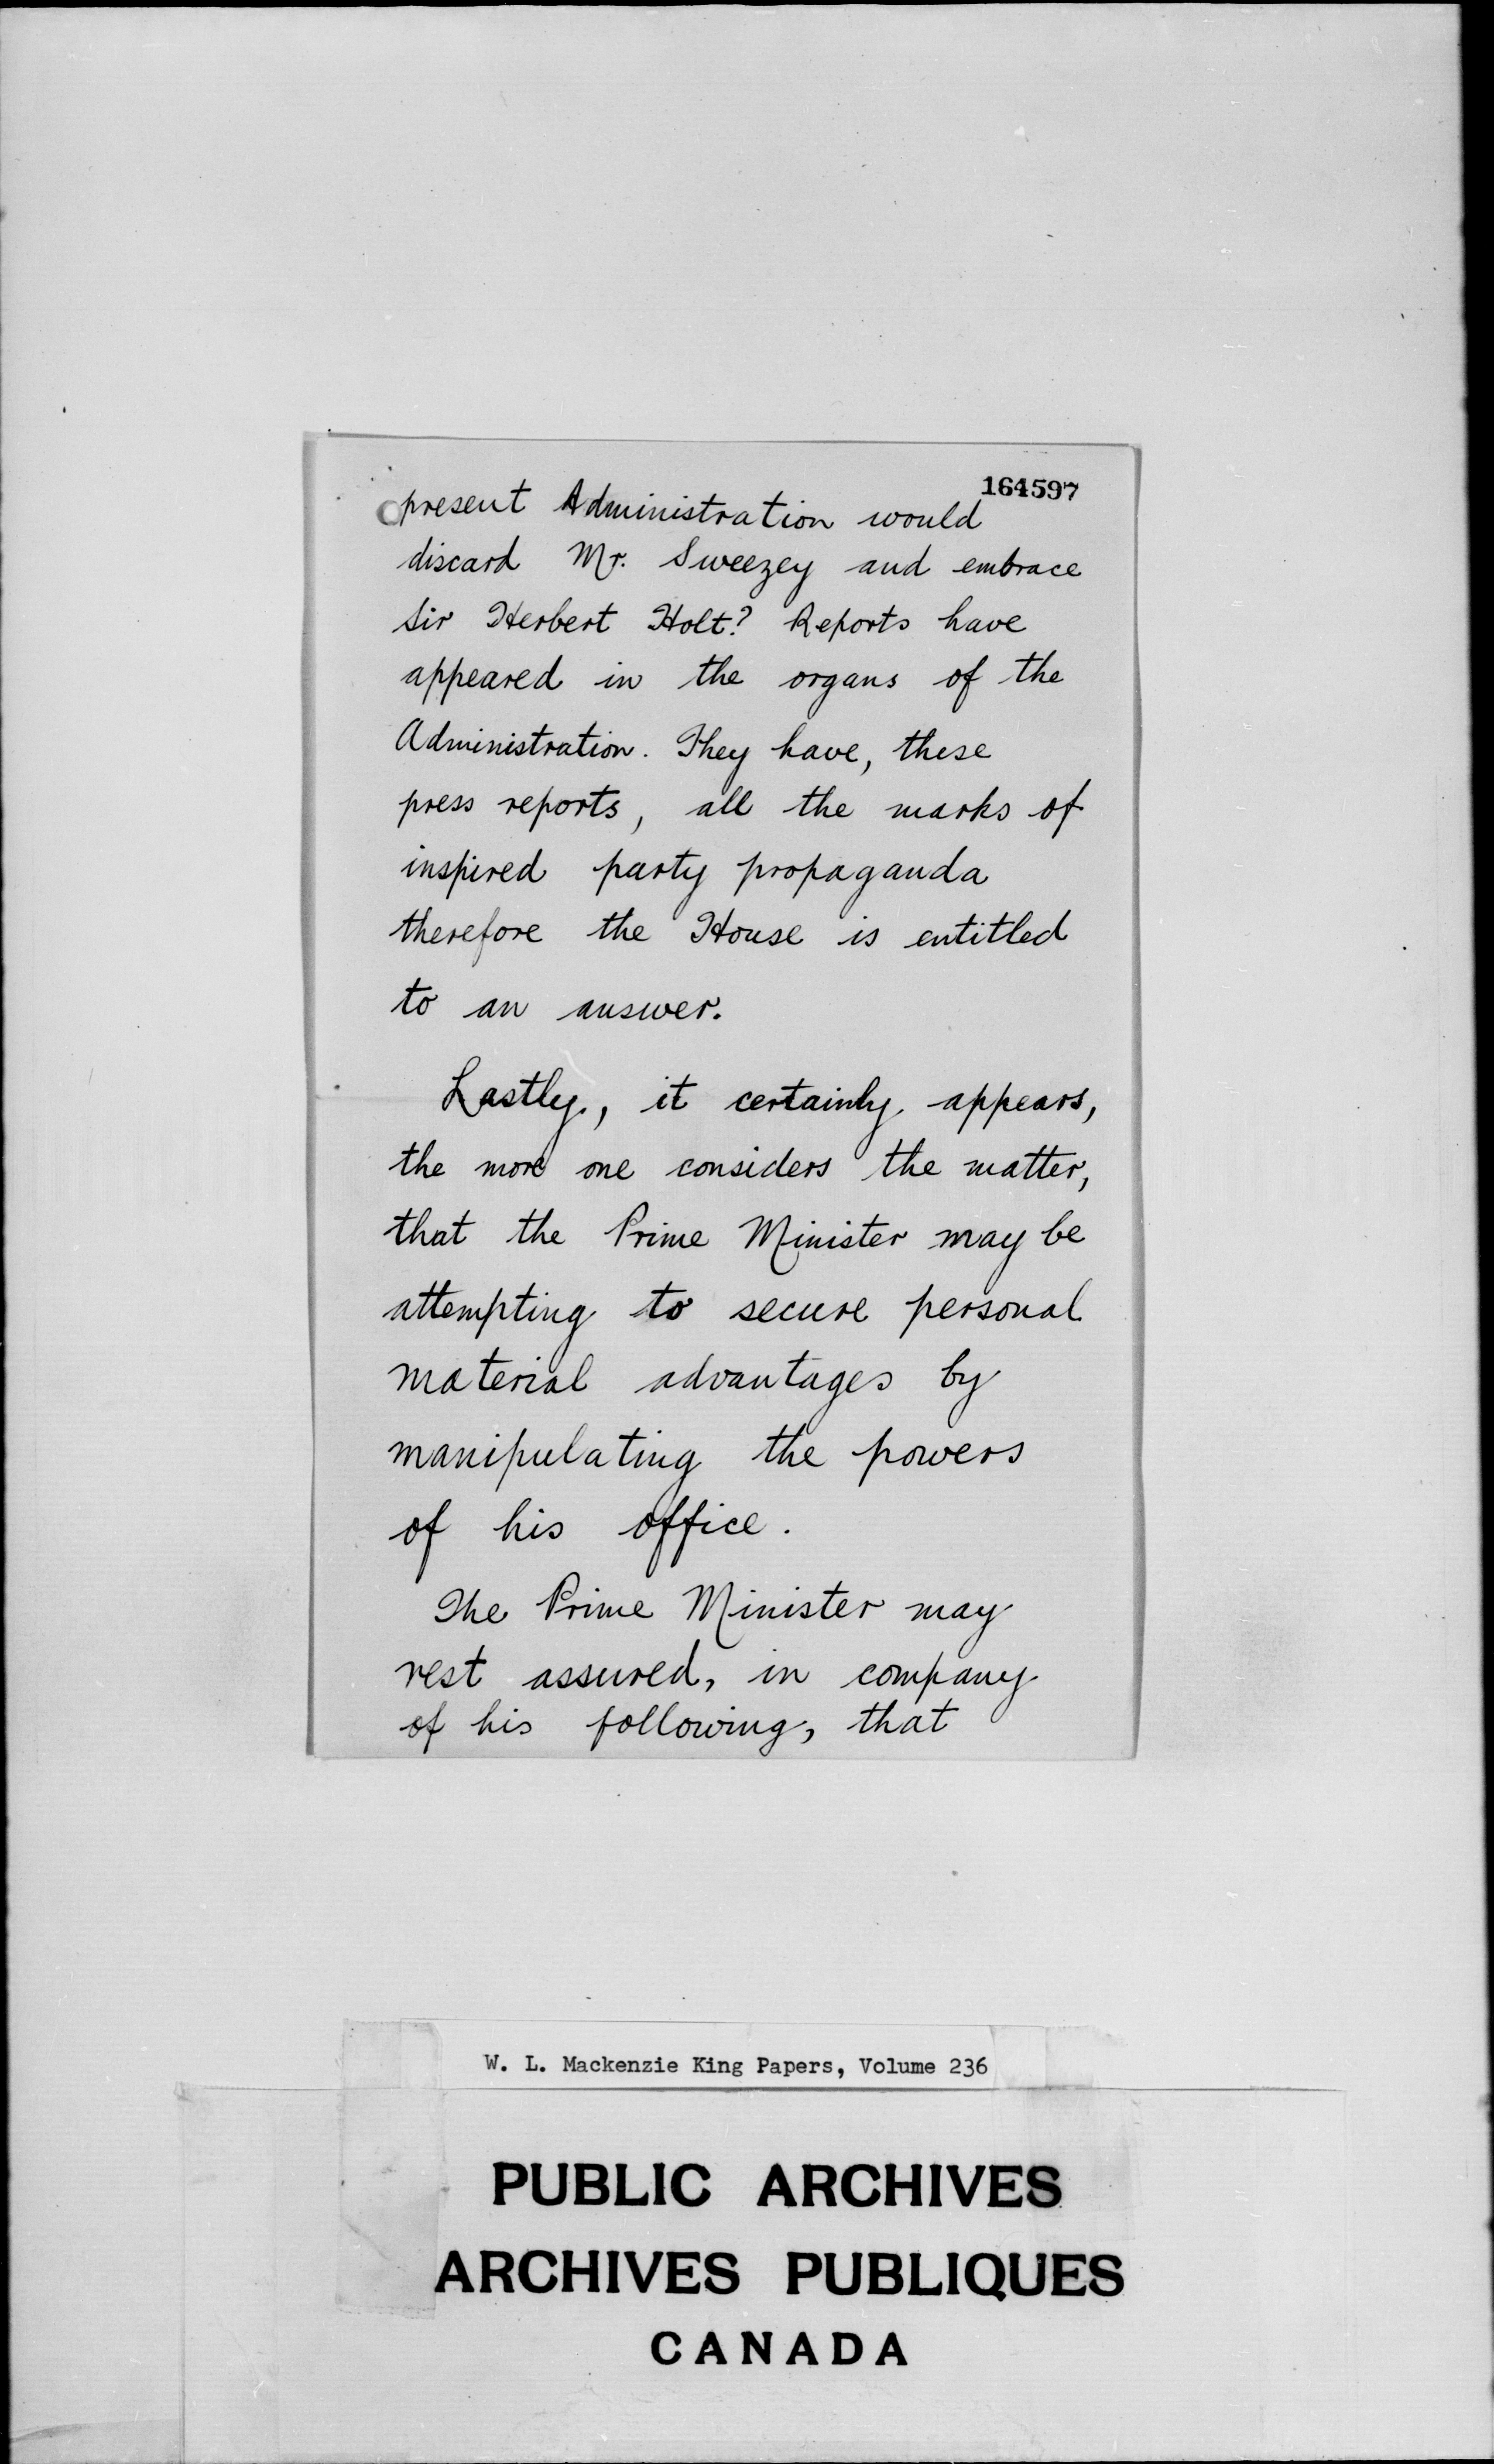 164597
present Administration would
discard Mr. Sweezey and embrace
Sir Herbert Holt? Reports have
appeared in the organs of the
Administration. They have, these
press reports, all the marks of
inspired party propaganda
therefore the House is entitled
to an answer.
Lastly, it certainly appears,
the more one considers the matter,
that the Prime Minister may be
attempting to secure personal
material advantages by
manipulating the powers
of his office.
The Prime Minister may
rest assured, in company
of his following, that
W. L. Mackenzie King Papers, Volume 236
PUBLIC ARCHIVES
ARCHIVES PUBLIQUES
CANADA